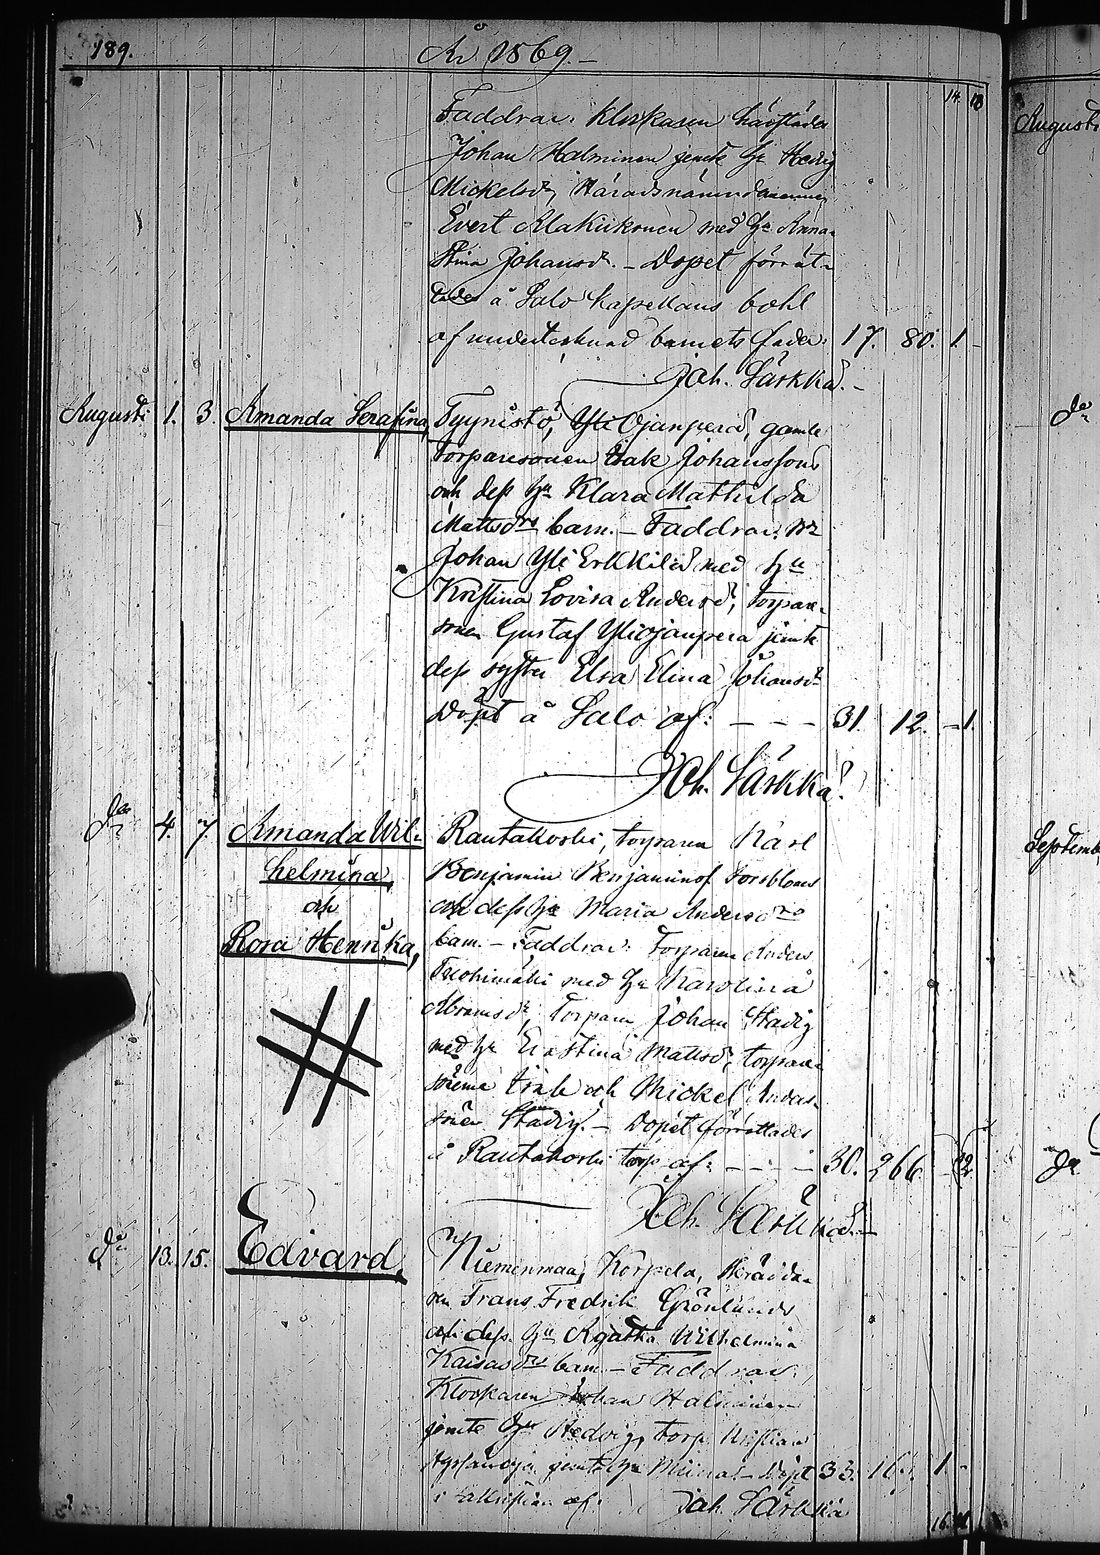 189.
År 1869.
14. 13
Faddrar: Klockaren härstädes
Johan Halminen jemte h. Hedvig
Mickelsdr, Häradsnämndemannen
Evert Alakiikonen med h. Anna
Stina Johansdr. – Dopet förrät-
tades å Salo kapellans bohl
af undertecknad barnets fader. 17. 80. 1.
Joh. Särkkä.
Augusti 1. 3. Amanda Serafina, Tyynistö, Yli Ojanperä, gamle
torparesonen Isak Johanssons
och dess hu Klara Mathilda
Mattsdrs barn. – Faddrar:
Johan Yli Erkkilä med hu
Kristina Lovisa Andersdr, torpare-
sonen Gustaf Yliojanpera jemte
dess syster Elsa Elina Johansdr
Döpt å Salo af: – – – 31. 12. – 1.
Joh. Särkkä.
do 4. 7. Amanda Wil- Rautakoski, torparen Karl
helmina, Benjamin Benjaminsf Forsbloms
och och dess hu Maria Andersdrs
Rosa Henrika, barn. – Faddrar: Torparen Anders
med hu Karolina
Abramsdr, Torparen Johan Stadig
med hu Eva Stina Mattsdr, torpare-
sönerne Isak och Mickel Anders-
söner Stadig. – Dopet förrättades
å Rautakoski torp af: – – – 30. 266 2
Joh. Särkkä.
do 13. 15. Edvard, Niemenmaa, Korpela, Skrädda-
ren Frans Fredrik Grönlunds
och dess hu Agatha Wilhelmina
Kaisasdrs barn – Faddrar:
Klockaren Johan Halminen
jemte hu Hedvig, torp. Kristian
jemte hu Miina – Döpt 33. 16. 1.
i sakristian af: Joh. Särkkä
16.
Augusti
do
Septemb
do